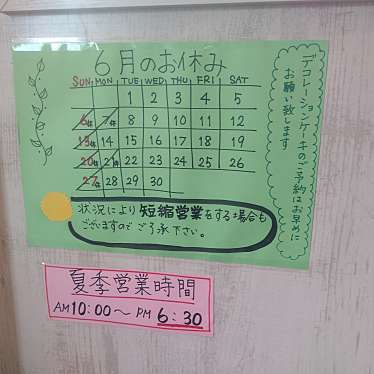 6月のお休み
SUN MON TUE WED THU FRI SAT
1 2 3 4 5
6休 7休 8 9 10 11 12
13休 14休 15 16 17 18 19
20休 21休 22 23 24 25 26
27休 28 29 30
状況により短縮営業をする場合も
ございますのでご了承下さい。
デコレーションケーキのご予約はお早めに
お願い致します
夏季営業時間
AM10:00～PM 6:30